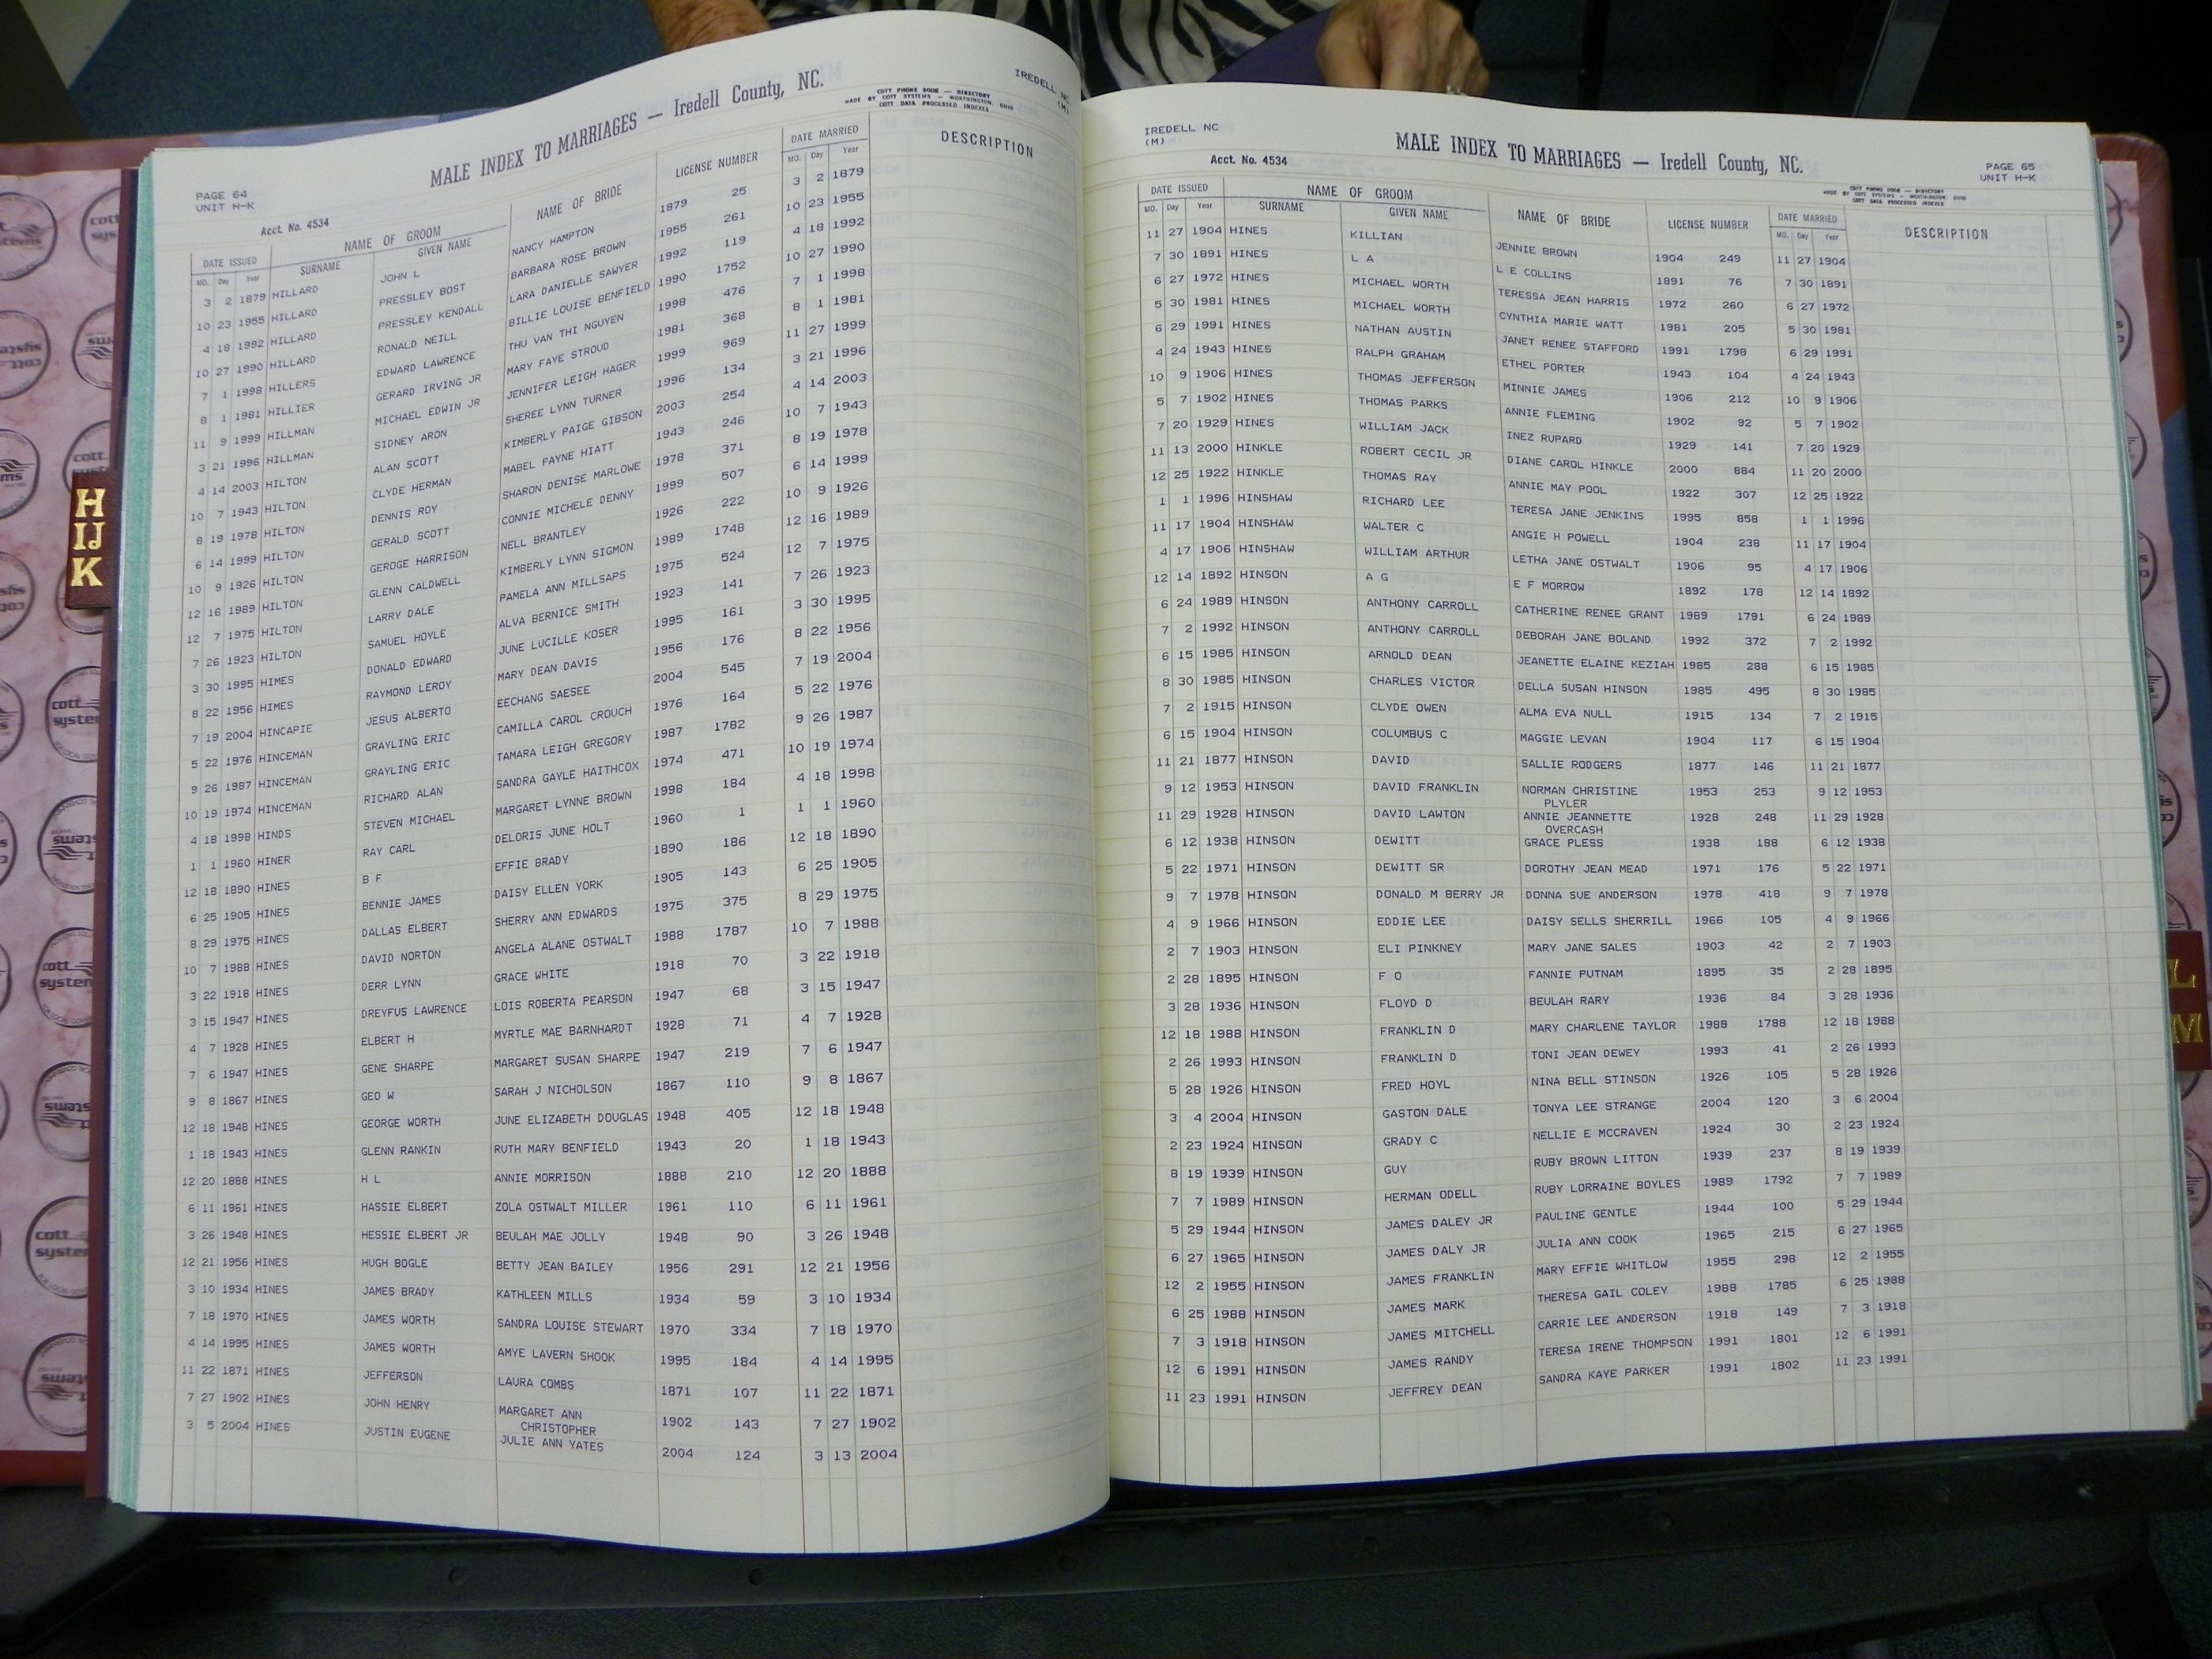 MALE INDEX TO MARRIAGES — Iredell County, NC.
IREDELL NC
(M)
COTT PHONE BOOK — DIRECTORY
MADE BY COTT SYSTEMS — WORTHINGTON, OHIO
COTT DATA PROCESSED INDEXES
PAGE 64
UNIT H-K
Acct. No. 4534
DATE ISSUED NAME OF GROOM NAME OF BRIDE LICENSE NUMBER DATE MARRIED DESCRIPTION
MO. Day Year SURNAME GIVEN NAME MO. Day Year
3 2 1879 HILLARD JOHN L NANCY HAMPTON 1879 25 3 2 1879
10 23 1955 HILLARD PRESSLEY BOST BARBARA ROSE BROWN 1955 261 10 23 1955
4 18 1992 HILLARD PRESSLEY KENDALL LARA DANIELLE SAWYER 1992 119 4 18 1992
10 27 1990 HILLARD RONALD NEILL BILLIE LOUISE BENFIELD 1990 1752 10 27 1990
7 1 1998 HILLERS EDWARD LAWRENCE THU VAN THI NGUYEN 1998 476 7 1 1998
8 1 1981 HILLIER GERARD IRVING JR MARY FAYE STROUD 1981 368 8 1 1981
11 9 1999 HILLMAN MICHAEL EDWIN JR JENNIFER LEIGH HAGER 1999 969 11 27 1999
3 21 1996 HILLMAN SIDNEY ARON SHEREE LYNN TURNER 1996 134 3 21 1996
4 14 2003 HILTON ALAN SCOTT KIMBERLY PAIGE GIBSON 2003 254 4 14 2003
10 7 1943 HILTON CLYDE HERMAN MABEL PAYNE HIATT 1943 246 10 7 1943
8 19 1978 HILTON DENNIS ROY SHARON DENISE MARLOWE 1978 371 8 19 1978
6 14 1999 HILTON GERALD SCOTT CONNIE MICHELE DENNY 1999 507 6 14 1999
10 9 1926 HILTON GEROGE HARRISON NELL BRANTLEY 1926 222 10 9 1926
12 16 1989 HILTON GLENN CALDWELL KIMBERLY LYNN SIGMON 1989 1748 12 16 1989
12 7 1975 HILTON LARRY DALE PAMELA ANN MILLSAPS 1975 524 12 7 1975
7 26 1923 HILTON SAMUEL HOYLE ALVA BERNICE SMITH 1923 141 7 26 1923
3 30 1995 HIMES DONALD EDWARD JUNE LUCILLE KOSER 1995 161 3 30 1995
8 22 1956 HIMES RAYMOND LEROY MARY DEAN DAVIS 1956 176 8 22 1956
7 19 2004 HINCAPIE JESUS ALBERTO EECHANG SAESEE 2004 545 7 19 2004
5 22 1976 HINCEMAN GRAYLING ERIC CAMILLA CAROL CROUCH 1976 164 5 22 1976
9 26 1987 HINCEMAN GRAYLING ERIC TAMARA LEIGH GREGORY 1987 1782 9 26 1987
10 19 1974 HINCEMAN RICHARD ALAN SANDRA GAYLE HAITHCOX 1974 471 10 19 1974
4 18 1998 HINDS STEVEN MICHAEL MARGARET LYNNE BROWN 1998 184 4 18 1998
1 1 1960 HINER RAY CARL DELORIS JUNE HOLT 1960 1 1 1 1960
12 18 1890 HINES B F EFFIE BRADY 1890 186 12 18 1890
6 25 1905 HINES BENNIE JAMES DAISY ELLEN YORK 1905 143 6 25 1905
8 29 1975 HINES DALLAS ELBERT SHERRY ANN EDWARDS 1975 375 8 29 1975
10 7 1988 HINES DAVID NORTON ANGELA ALANE OSTWALT 1988 1787 10 7 1988
3 22 1918 HINES DERR LYNN GRACE WHITE 1918 70 3 22 1918
3 15 1947 HINES DREYFUS LAWRENCE LOIS ROBERTA PEARSON 1947 68 3 15 1947
4 7 1928 HINES ELBERT H MYRTLE MAE BARNHARDT 1928 71 4 7 1928
7 6 1947 HINES GENE SHARPE MARGARET SUSAN SHARPE 1947 219 7 6 1947
9 8 1867 HINES GEO W SARAH J NICHOLSON 1867 110 9 8 1867
12 18 1948 HINES GEORGE WORTH JUNE ELIZABETH DOUGLAS 1948 405 12 18 1948
1 18 1943 HINES GLENN RANKIN RUTH MARY BENFIELD 1943 20 1 18 1943
12 20 1888 HINES H L ANNIE MORRISON 1888 210 12 20 1888
6 11 1961 HINES HASSIE ELBERT ZOLA OSTWALT MILLER 1961 110 6 11 1961
3 26 1948 HINES HESSIE ELBERT JR BEULAH MAE JOLLY 1948 90 3 26 1948
12 21 1956 HINES HUGH BOGLE BETTY JEAN BAILEY 1956 291 12 21 1956
3 10 1934 HINES JAMES BRADY KATHLEEN MILLS 1934 59 3 10 1934
7 18 1970 HINES JAMES WORTH SANDRA LOUISE STEWART 1970 334 7 18 1970
4 14 1995 HINES JAMES WORTH AMYE LAVERN SHOOK 1995 184 4 14 1995
11 22 1871 HINES JEFFERSON LAURA COMBS 1871 107 11 22 1871
7 27 1902 HINES JOHN HENRY MARGARET ANN 1902 143 7 27 1902
CHRISTOPHER
3 5 2004 HINES JUSTIN EUGENE JULIE ANN YATES 2004 124 3 13 2004
IREDELL NC
(M)
MALE INDEX TO MARRIAGES — Iredell County, NC.
Acct. No. 4534
PAGE 65
UNIT H-K
COTT PHONE BOOK — DIRECTORY
MADE BY COTT SYSTEMS — WORTHINGTON, OHIO
COTT DATA PROCESSED INDEXES
DATE ISSUED NAME OF GROOM NAME OF BRIDE LICENSE NUMBER DATE MARRIED DESCRIPTION
MO. Day Year SURNAME GIVEN NAME MO. Day Year
11 27 1904 HINES KILLIAN JENNIE BROWN 1904 249 11 27 1904
7 30 1891 HINES L A L E COLLINS 1891 76 7 30 1891
6 27 1972 HINES MICHAEL WORTH TERESSA JEAN HARRIS 1972 260 6 27 1972
5 30 1981 HINES MICHAEL WORTH CYNTHIA MARIE WATT 1981 205 5 30 1981
6 29 1991 HINES NATHAN AUSTIN JANET RENEE STAFFORD 1991 1798 6 29 1991
4 24 1943 HINES RALPH GRAHAM ETHEL PORTER 1943 104 4 24 1943
10 9 1906 HINES THOMAS JEFFERSON MINNIE JAMES 1906 212 10 9 1906
5 7 1902 HINES THOMAS PARKS ANNIE FLEMING 1902 92 5 7 1902
7 20 1929 HINES WILLIAM JACK INEZ RUPARD 1929 141 7 20 1929
11 13 2000 HINKLE ROBERT CECIL JR DIANE CAROL HINKLE 2000 884 11 20 2000
12 25 1922 HINKLE THOMAS RAY ANNIE MAY POOL 1922 307 12 25 1922
1 1 1996 HINSHAW RICHARD LEE TERESA JANE JENKINS 1995 858 1 1 1996
11 17 1904 HINSHAW WALTER C ANGIE H POWELL 1904 238 11 17 1904
4 17 1906 HINSHAW WILLIAM ARTHUR LETHA JANE OSTWALT 1906 95 4 17 1906
12 14 1892 HINSON A G E F MORROW 1892 178 12 14 1892
6 24 1989 HINSON ANTHONY CARROLL CATHERINE RENEE GRANT 1989 1791 6 24 1989
7 2 1992 HINSON ANTHONY CARROLL DEBORAH JANE BOLAND 1992 372 7 2 1992
6 15 1985 HINSON ARNOLD DEAN JEANETTE ELAINE KEZIAH 1985 288 6 15 1985
8 30 1985 HINSON CHARLES VICTOR DELLA SUSAN HINSON 1985 495 8 30 1985
7 2 1915 HINSON CLYDE OWEN ALMA EVA NULL 1915 134 7 2 1915
6 15 1904 HINSON COLUMBUS C MAGGIE LEVAN 1904 117 6 15 1904
11 21 1877 HINSON DAVID SALLIE RODGERS 1877 146 11 21 1877
9 12 1953 HINSON DAVID FRANKLIN NORMAN CHRISTINE 1953 253 9 12 1953
PLYLER
11 29 1928 HINSON DAVID LAWTON ANNIE JEANNETTE 1928 248 11 29 1928
OVERCASH
6 12 1938 HINSON DEWITT GRACE PLESS 1938 188 6 12 1938
5 22 1971 HINSON DEWITT SR DOROTHY JEAN MEAD 1971 176 5 22 1971
9 7 1978 HINSON DONALD M BERRY JR DONNA SUE ANDERSON 1978 418 9 7 1978
4 9 1966 HINSON EDDIE LEE DAISY SELLS SHERRILL 1966 105 4 9 1966
2 7 1903 HINSON ELI PINKNEY MARY JANE SALES 1903 42 2 7 1903
2 28 1895 HINSON F O FANNIE PUTNAM 1895 35 2 28 1895
3 28 1936 HINSON FLOYD D BEULAH RARY 1936 84 3 28 1936
12 18 1988 HINSON FRANKLIN D MARY CHARLENE TAYLOR 1988 1788 12 18 1988
2 26 1993 HINSON FRANKLIN D TONI JEAN DEWEY 1993 41 2 26 1993
5 28 1926 HINSON FRED HOYL NINA BELL STINSON 1926 105 5 28 1926
3 4 2004 HINSON GASTON DALE TONYA LEE STRANGE 2004 120 3 6 2004
2 23 1924 HINSON GRADY C NELLIE E MCCRAVEN 1924 30 2 23 1924
8 19 1939 HINSON GUY RUBY BROWN LITTON 1939 237 8 19 1939
7 7 1989 HINSON HERMAN ODELL RUBY LORRAINE BOYLES 1989 1792 7 7 1989
5 29 1944 HINSON JAMES DALEY JR PAULINE GENTLE 1944 100 5 29 1944
6 27 1965 HINSON JAMES DALY JR JULIA ANN COOK 1965 215 6 27 1965
12 2 1955 HINSON JAMES FRANKLIN MARY EFFIE WHITLOW 1955 298 12 2 1955
6 25 1988 HINSON JAMES MARK THERESA GAIL COLEY 1988 1785 6 25 1988
7 3 1918 HINSON JAMES MITCHELL CARRIE LEE ANDERSON 1918 149 7 3 1918
12 6 1991 HINSON JAMES RANDY TERESA IRENE THOMPSON 1991 1801 12 6 1991
11 23 1991 HINSON JEFFREY DEAN SANDRA KAYE PARKER 1991 1802 11 23 1991
H
IJ
K
L
M
cott
systems